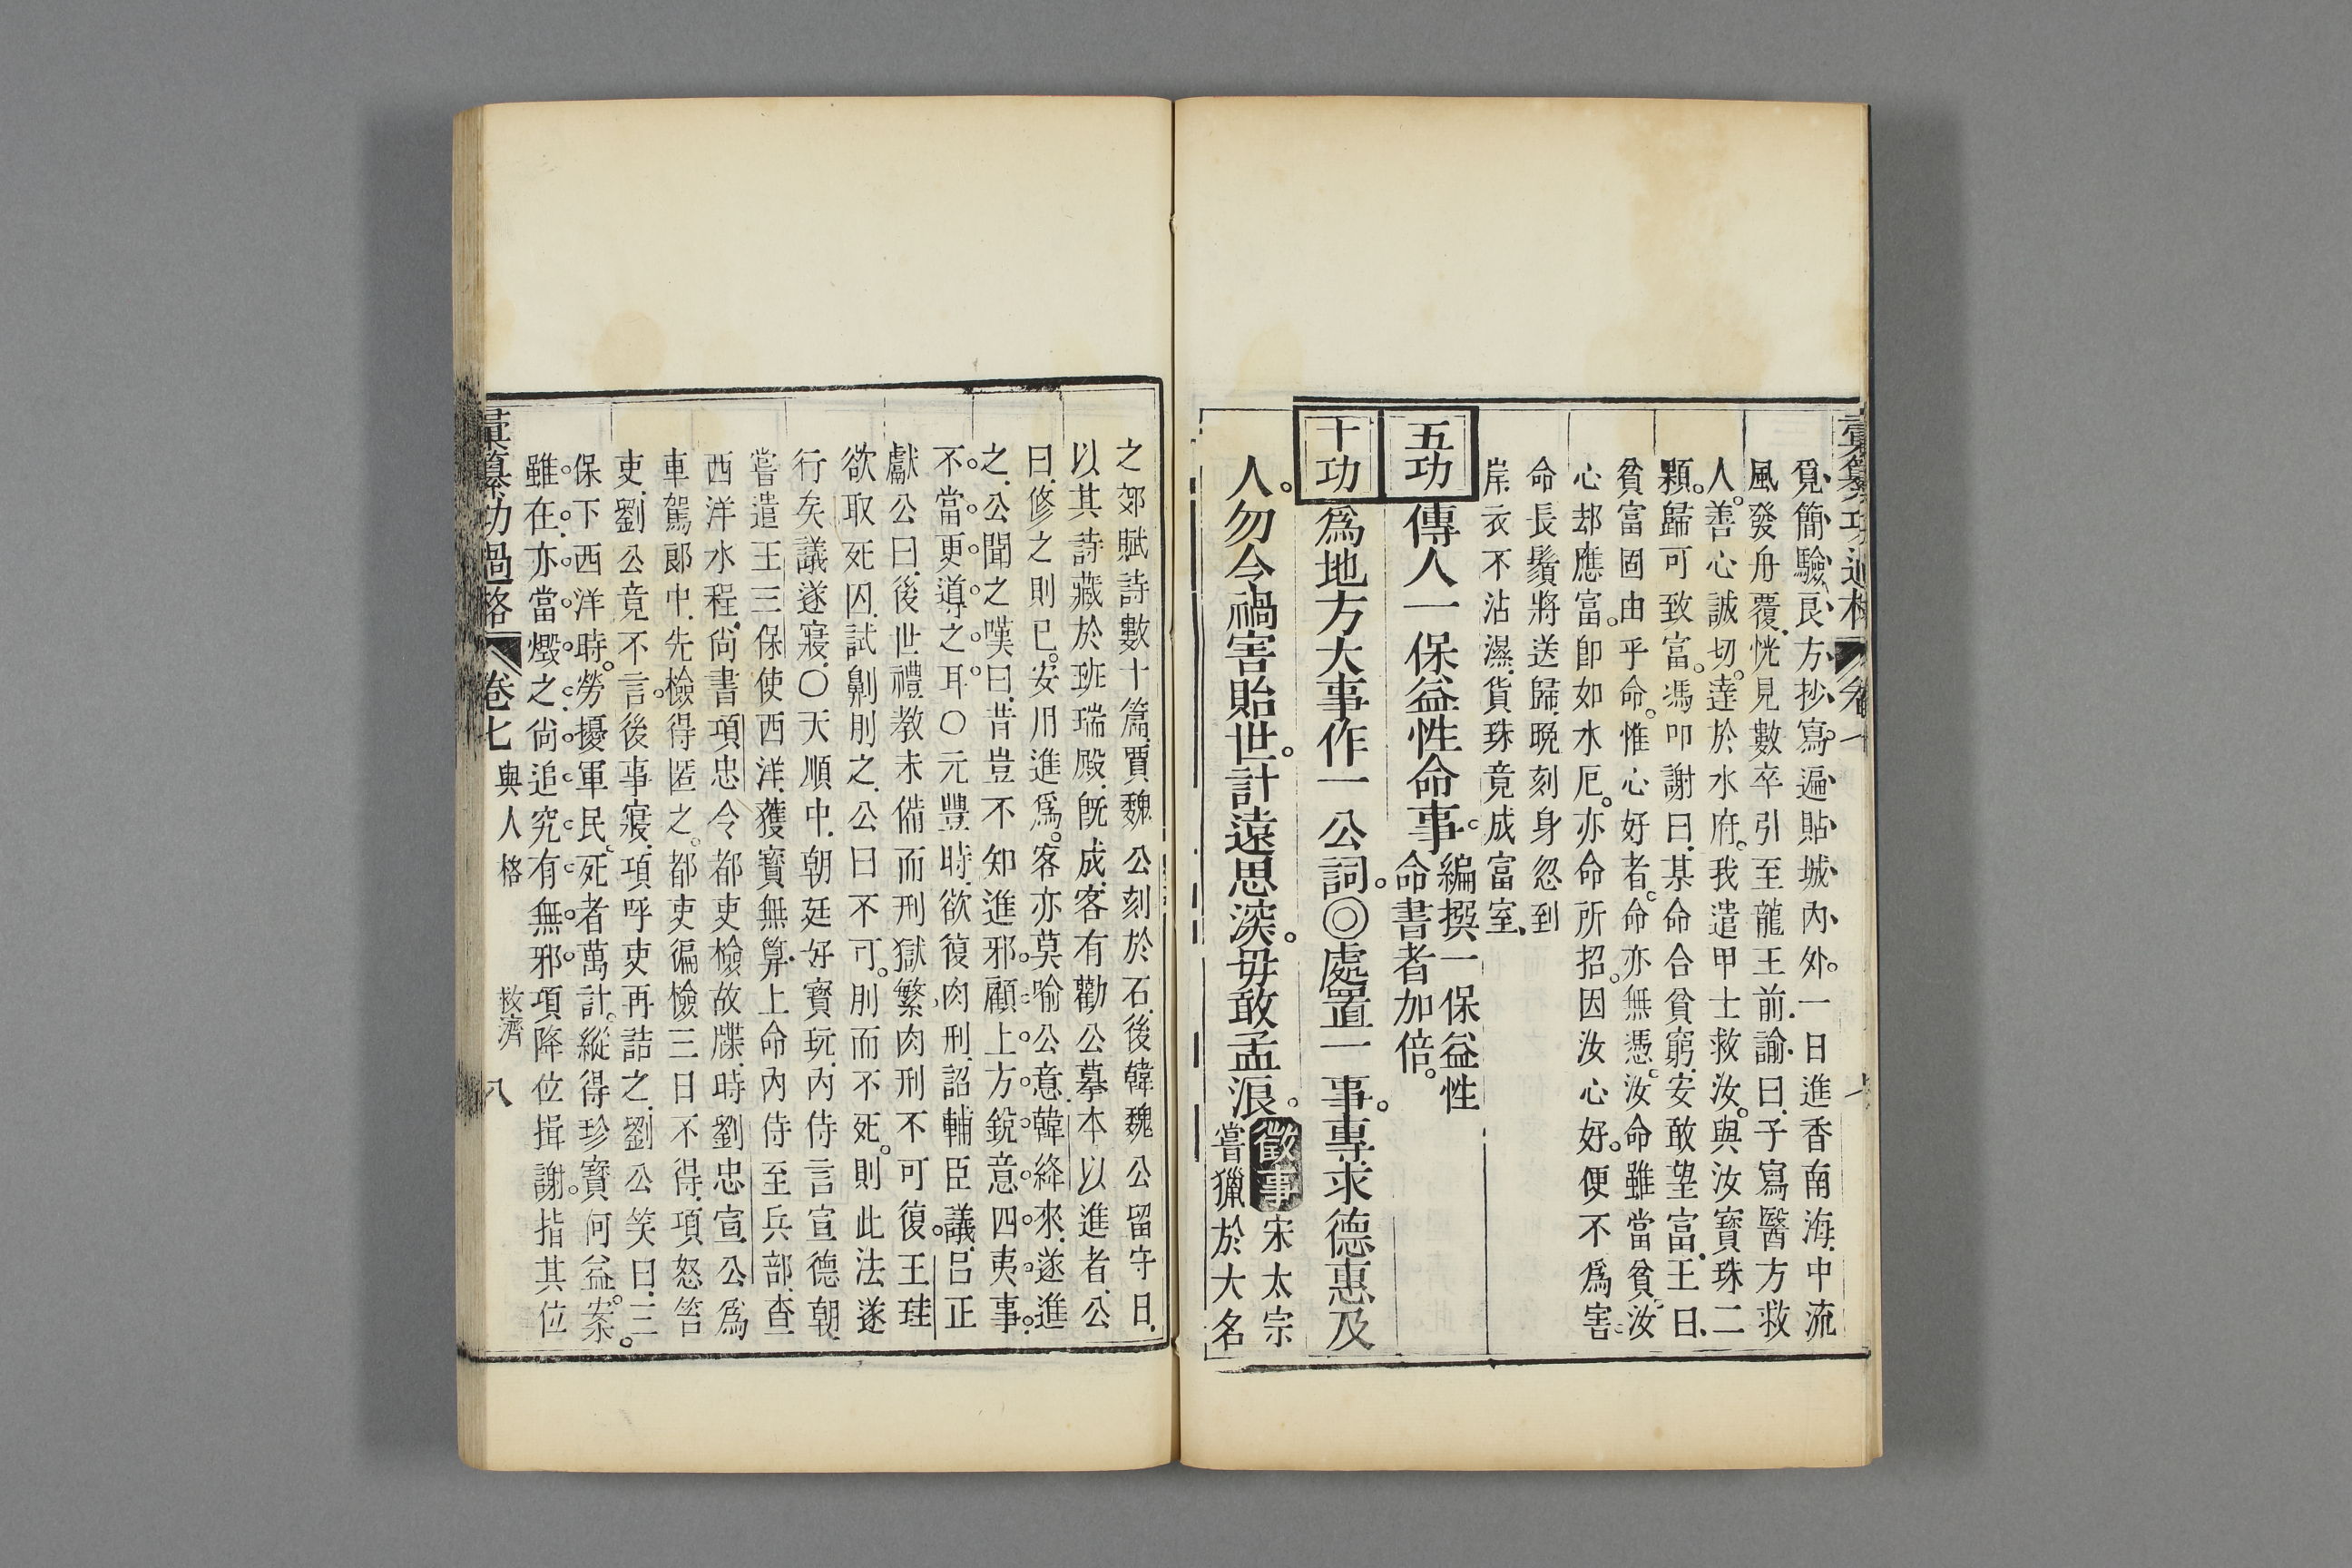 覓簡驗良方抄寫遍貼城內外。一日進香南海中流
風發舟覆恍見數卒引至龍王前諭曰子寫醫方救
人。善心誠切。達於水府。我遣甲士救汝。與汝寶珠二
顆。歸可致富。馮叩謝曰某命合貧窮安敢望富王曰
貧富固由乎命。惟心好者。命亦無憑。汝命雖當貧。汝
心却應富。卽如水厄。亦命所招。因汝心好。便不爲害。
命長鬚將送歸晩刻身忽到
岸衣不沾濕貨珠竟成富室
五功 傳人一保益性命事。編撰一保益性
命書者加倍。
十功 爲地方大事作一公詞。◎處置一事。專求德惠及
人。勿令禍害貽世。計遠思深。毋敢孟浪。徵事 宋太宗
嘗獵於大名
之郊賦詩數十篇賈魏公刻於石後韓魏公留守日
以其詩藏於班瑞殿旣成客有勸公摹本以進者公
曰修之則已。安用進爲。客亦莫喻公意韓絳來遂進
之公聞之嘆曰昔豈不知進邪。顧上方銳意四夷事。
不當更道之耳。○元豐時欲復肉刑詔輔臣議呂正
獻公曰後世禮教未備而刑獄繁肉刑不可復。王珪
欲取死囚試劓刖之公曰不可。刖而不死。則此法遂
行矣議遂寢○天順中朝廷好寶玩內侍言宣德朝
嘗遣王三保使西洋獲寶無算上命內侍至兵部查
西洋水程尙書項忠令都吏檢故牒時劉忠宣公爲
車駕郎中先檢得匿之。都吏徧檢三日不得項怒笞
吏劉公竟不言。後事寢項呼吏再詰之劉公笑曰三
保下西洋時。勞擾軍民。死者萬計。縱得珍寶何益。案
雖在亦當燬之尙追究有無邪項降位揖謝。指其位
彙纂功過格 卷七 與人格 救濟 八